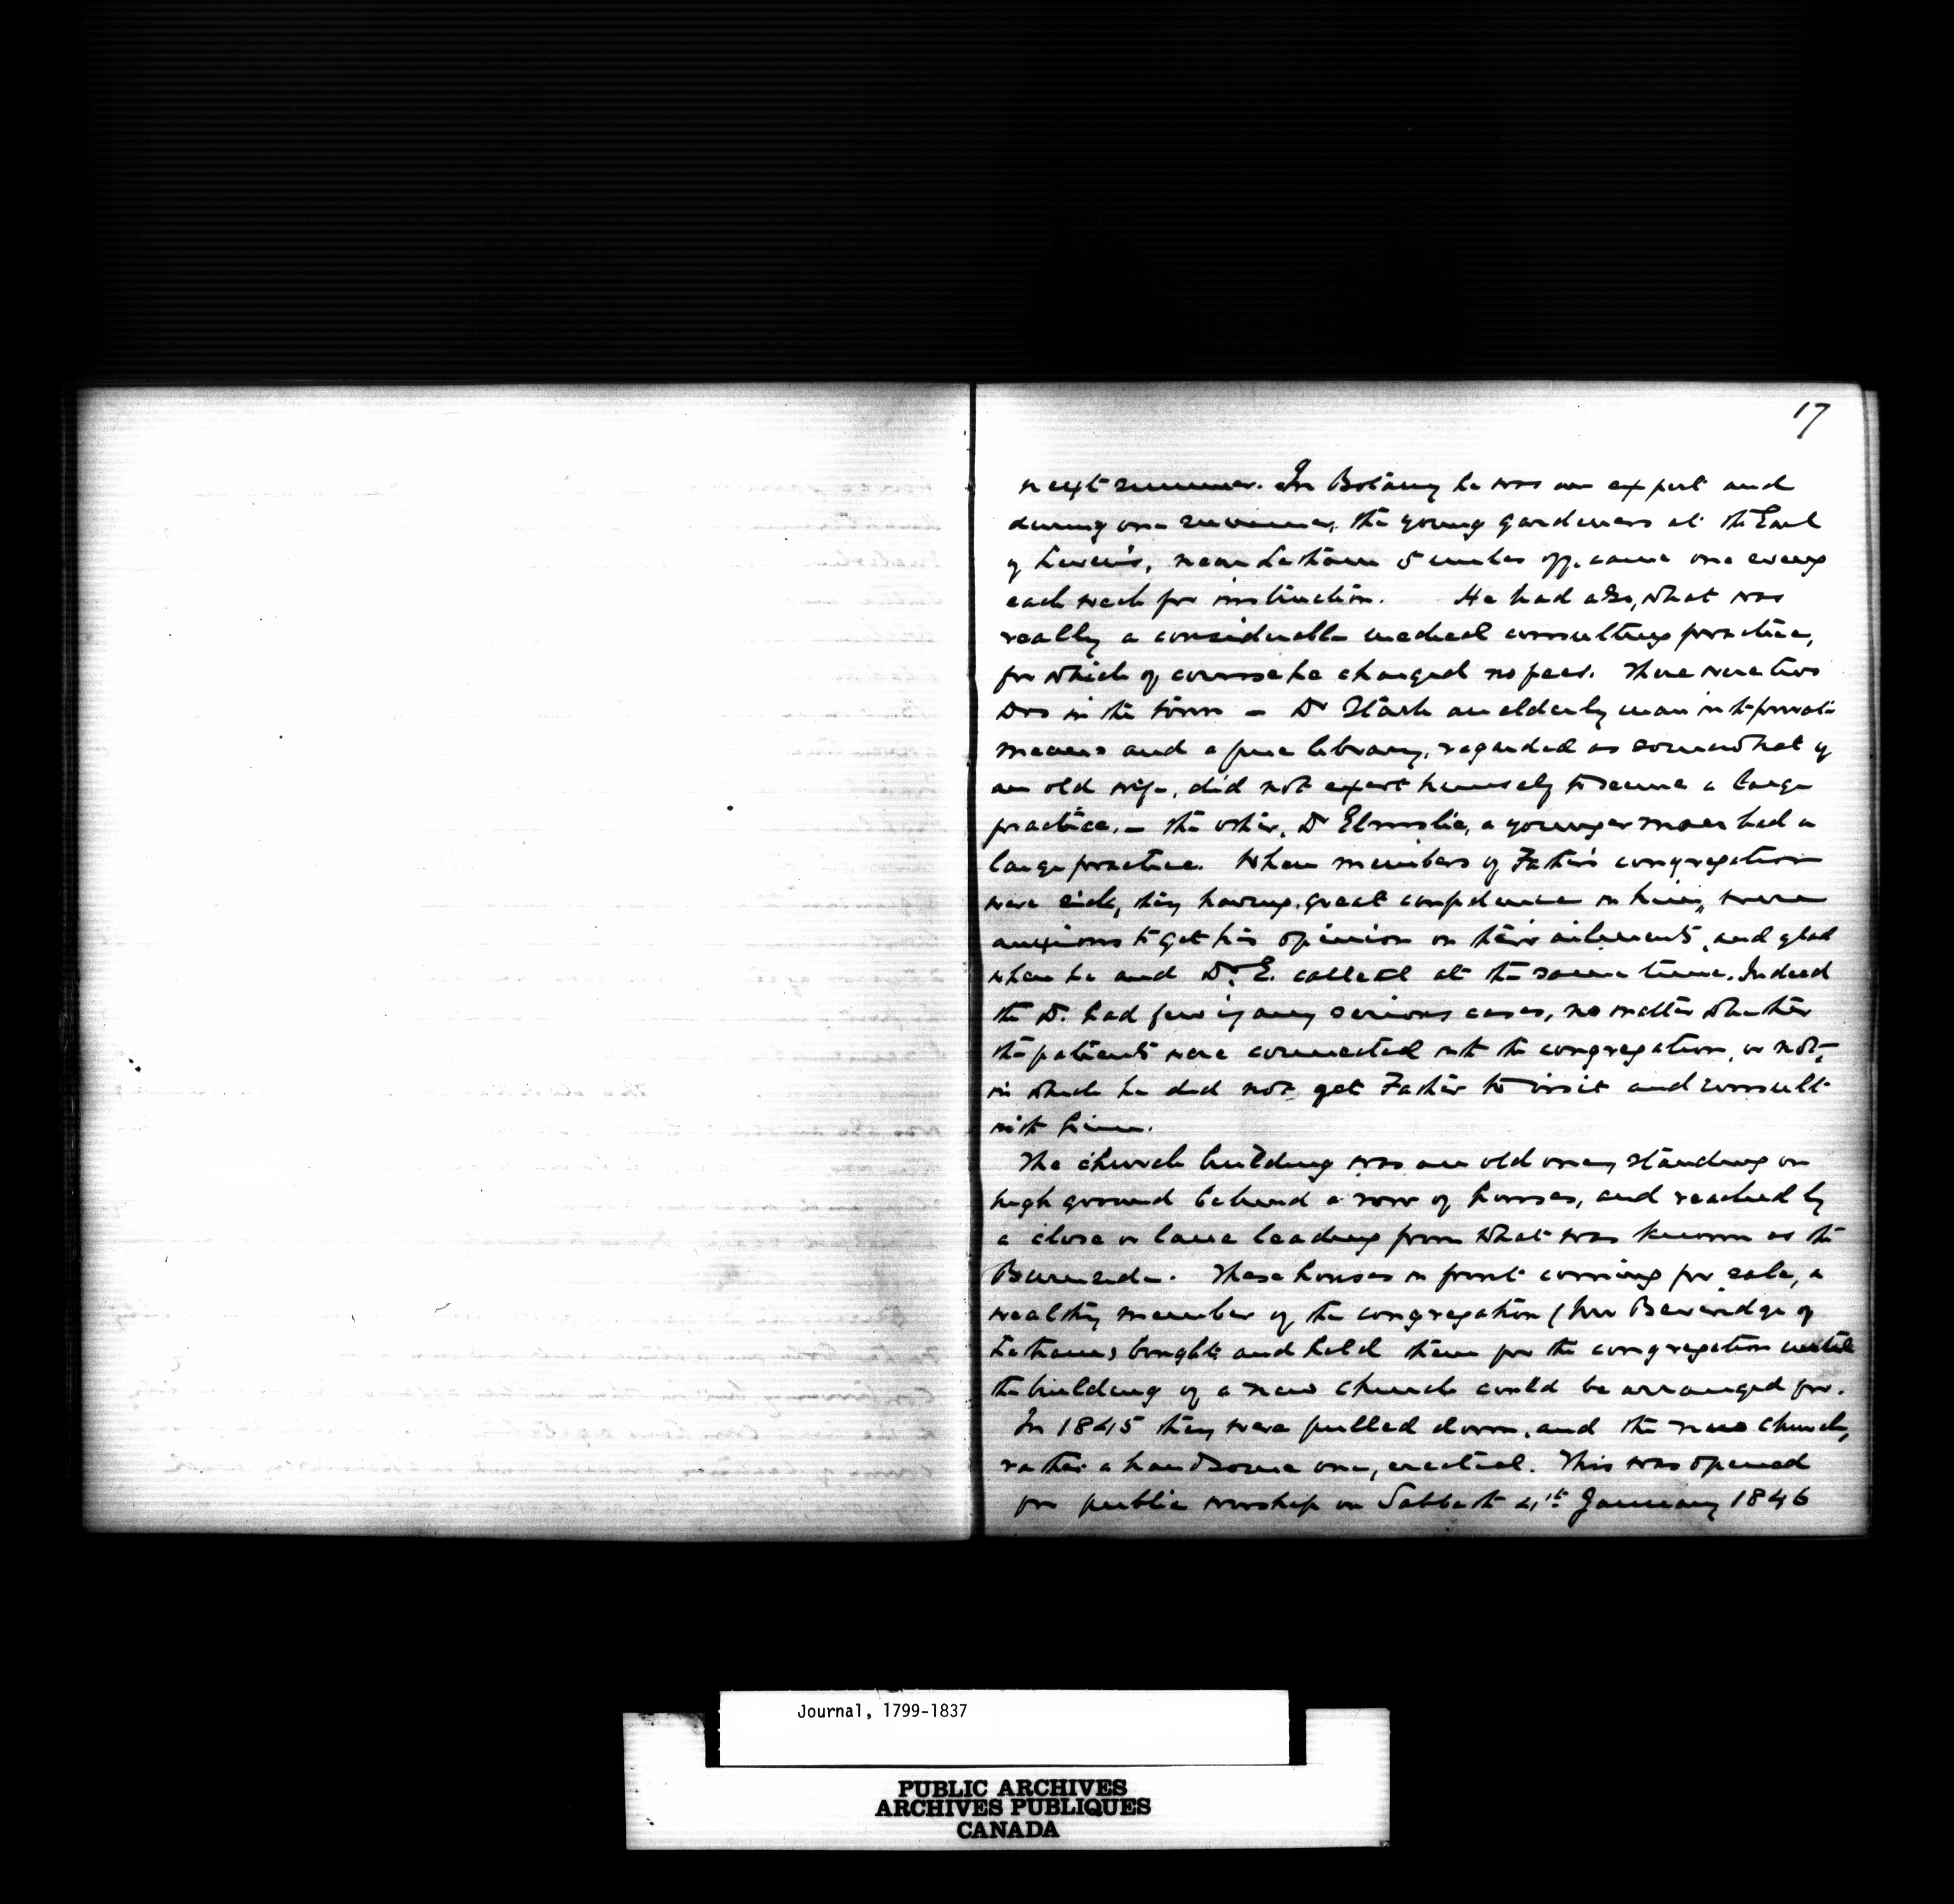 17
next summer. In Botany he was an expert and
during one summer, the young gardeners at the Earl
of Leven's, near Letham 5 miles off, came one eveng
each week for instruction. He had also, what was
really a considerable medical consulting practice,
for which of course he charged no fees. There were two
Drs in the town – Dr Stark an elderly man with private
means and a fine library, regarded as somewhat of
an old wife, did not exert himself to secure a large
practice, – the other, Dr Elmslie, a younger man had a
large practice. When members of Father's congregation
were sick, they having great confidence in him, were
anxious to get his opinion on their ailments, and glad
when he and Dr. E. called at the same time. Indeed
the D. had few if any serious cases, no matter whether
the patients were connected with the congregation, or not,
in which he did not get Father to visit and consult
with him.
The church building was an old one, standing on
high ground behind a row of houses, and reached by
a close or lane leading from what was known as the
Burnside. These houses in front coming for sale, a
wealthy member of the congregation (Mr Beveridge of
Letham) bought and held them for the congregation until
the building of a new church could be arranged for.
In 1845 they were pulled down, and the new church,
rather a handsome one, erected. This was opened
for public worship on Sabbath 4th January 1846
Journal, 1799-1837
PUBLIC ARCHIVES
ARCHIVES PUBLIQUES
CANADA